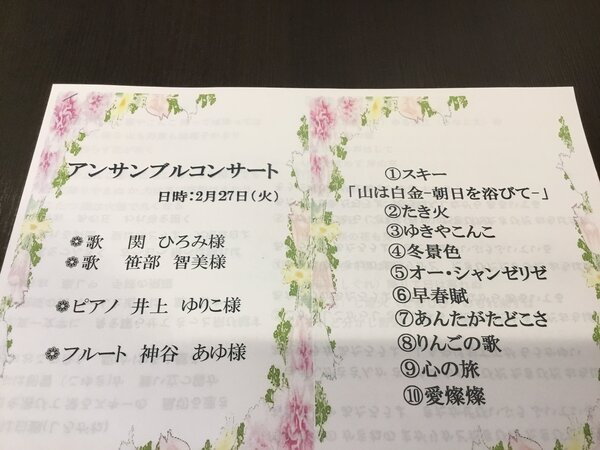 アンサンブルコンサート
日時:2月27日(火)
❁歌 関 ひろみ様
❁歌 笹部 智美様
❁ピアノ 井上 ゆりこ様
❁フルート 神谷 あゆ様
①スキー
「山は白金-朝日を浴びて-」
②たき火
③ゆきやこんこ
④冬景色
⑤オー・シャンゼリゼ
⑥早春賦
⑦あんたがたどこさ
⑧りんごの歌
⑨心の旅
⑩愛燦燦